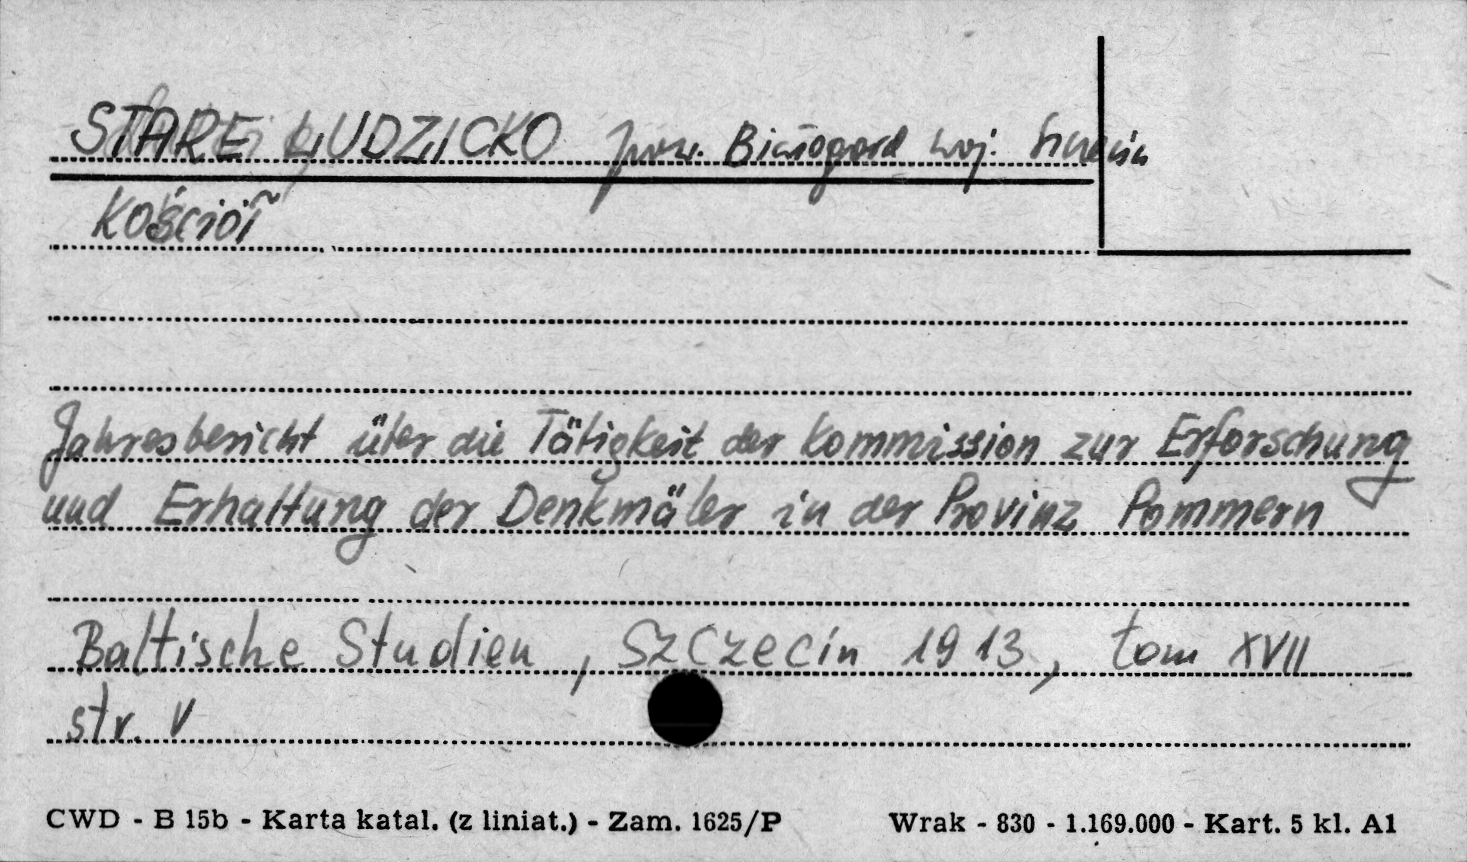 STARE LUDZICKO pow. Białogard woj. Szczecin
Kościół
Jahresbericht über die Tätigkeit der Kommission zur Erforschung
und Erhaltung der Denkmäler in der Provinz Pommern
Baltische Studien, Szczecin 1913, tom XVII
str. V
CWD - B 15b - Karta katal. (z liniat.) - Zam. 1625/P Wrak - 830 - 1.169.000 - Kart. 5 kl. A1